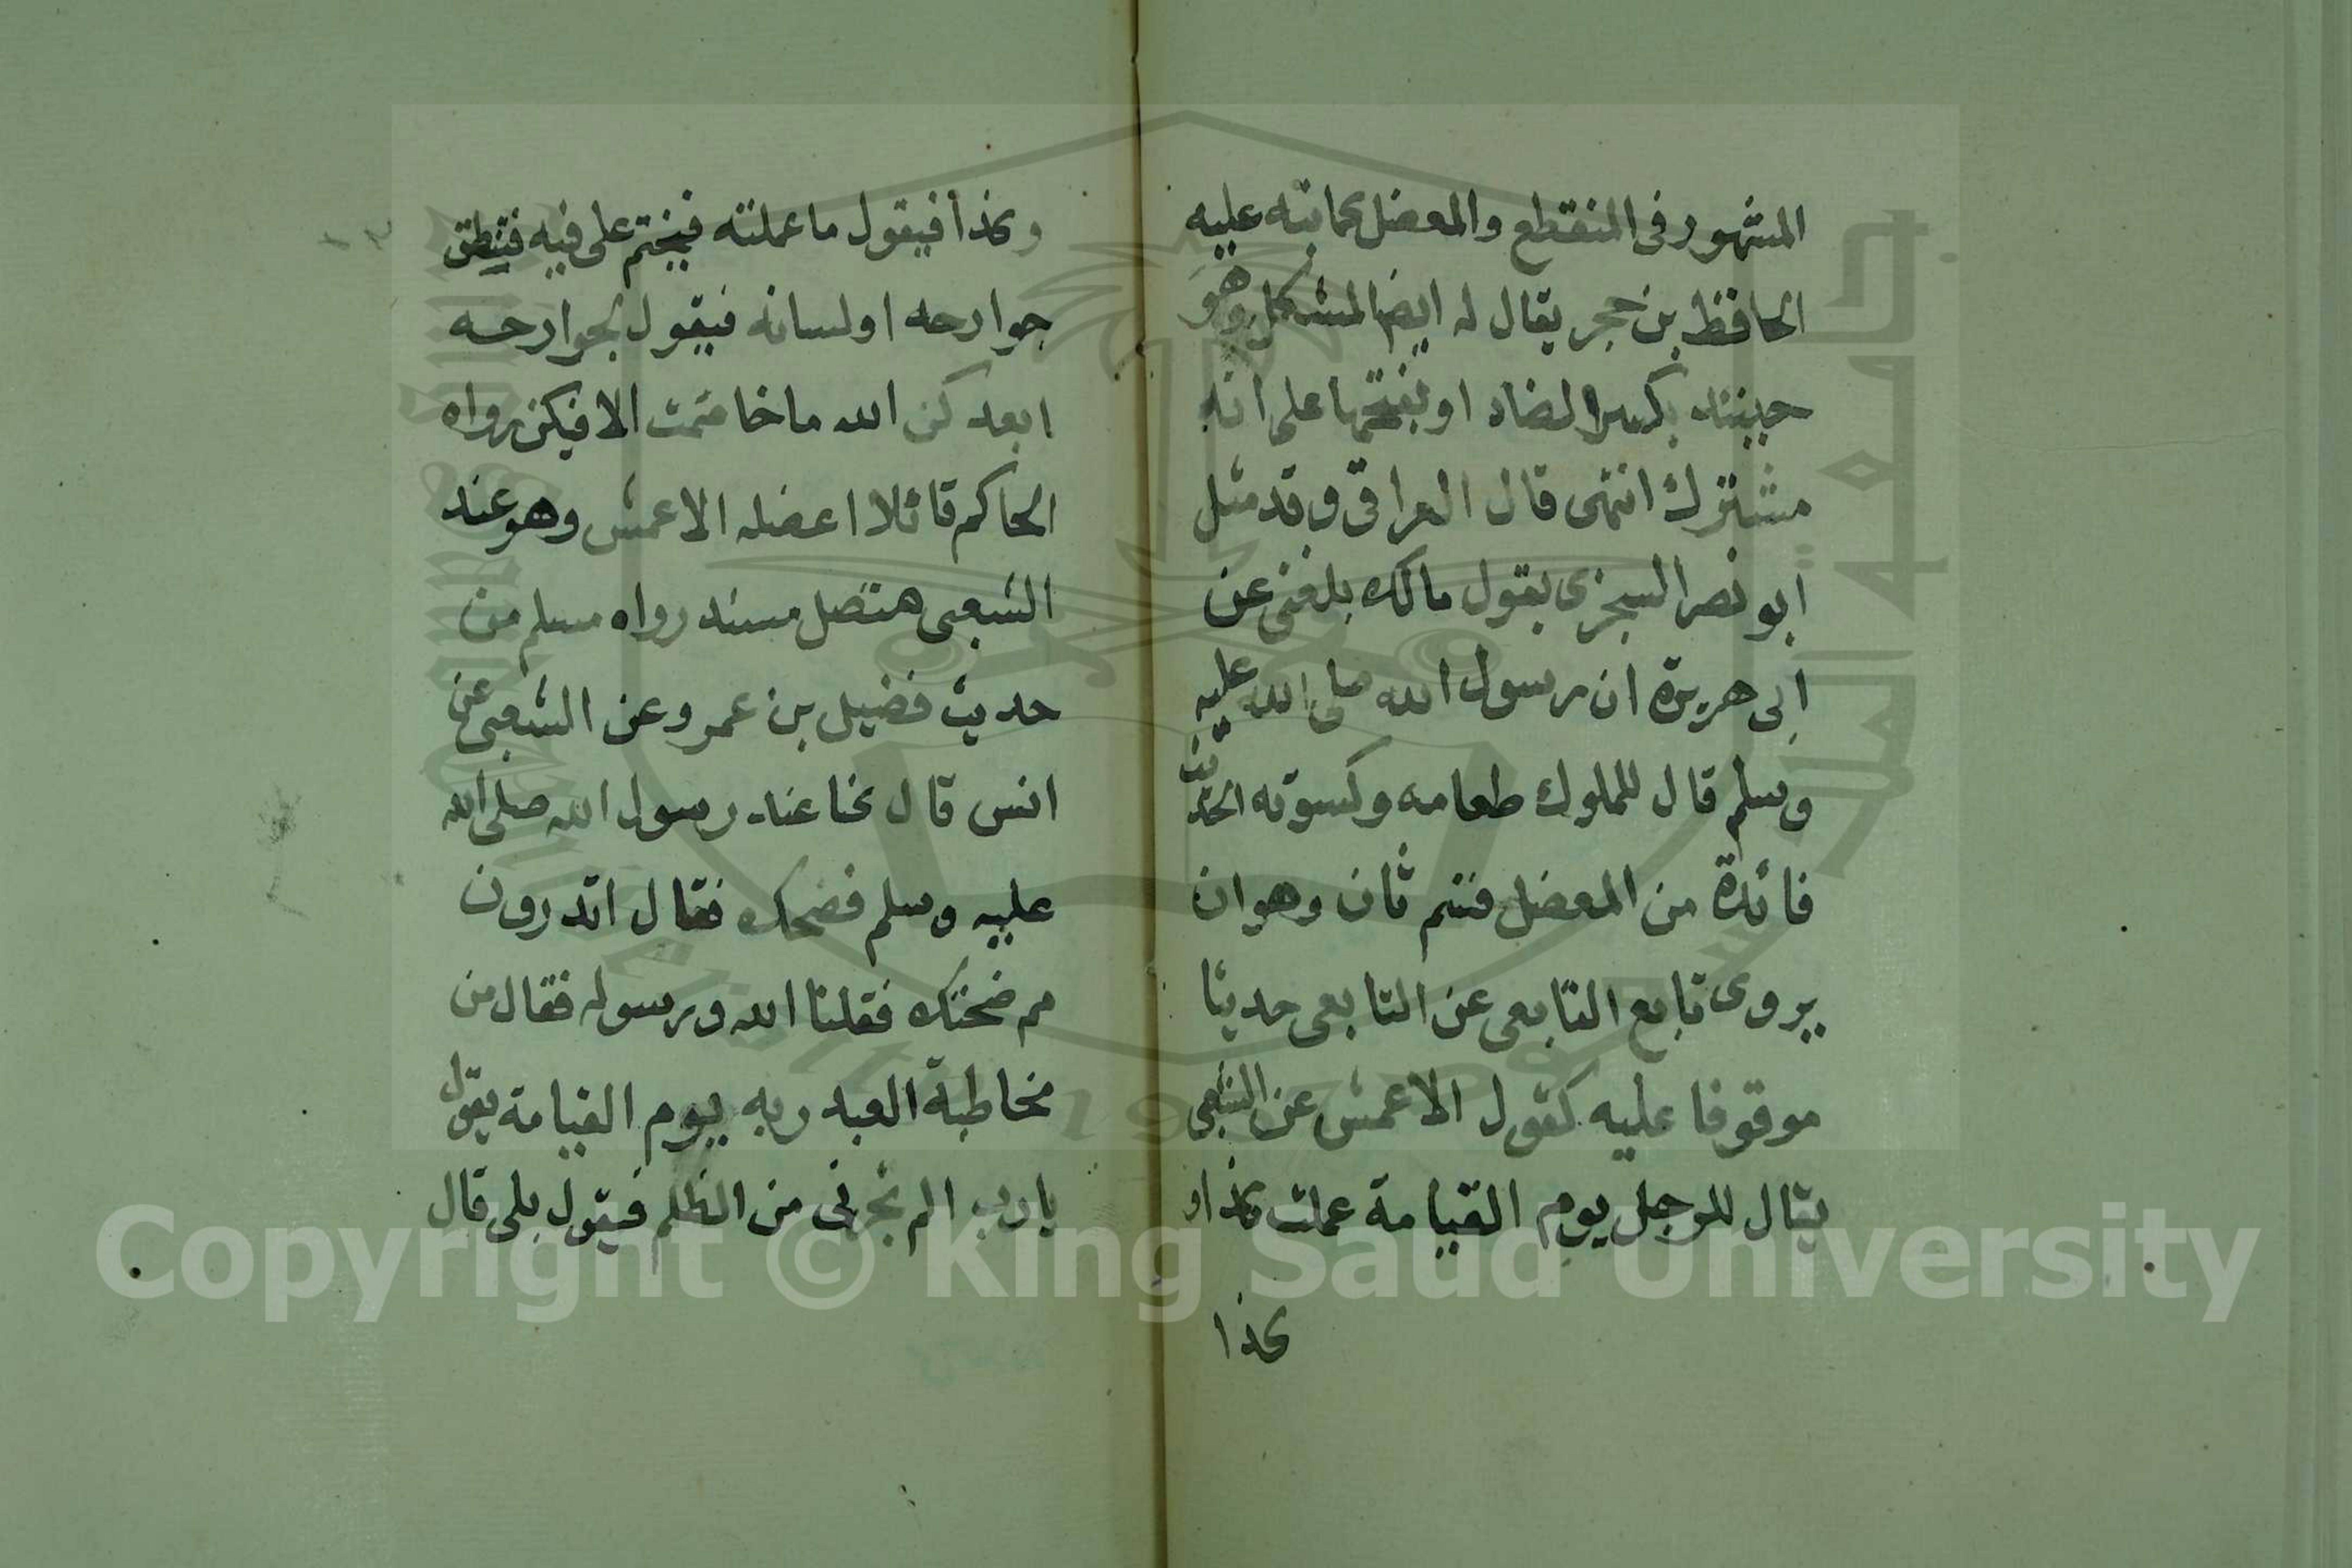 المشهور فى المنقطع والمعضل كما نبه عليه
الحافظ بن حجر يقال له ايضا المشكل وهو
حينئذ بكسر الضاد او بفتحها على انه
مشترك انتهى قال العراقى وقد مثل
ابو نصر السجزى بقول مالك بلغنى عن
ابى هريرة ان رسول الله صلى الله عليه
وسلم قال للملوك طعامه وكسوته الحديث
فائدة من المعضل قسم ثان وهو ان
يروى تابع التابعى عن التابعى حديثا
موقوفا عليه كقول الاعمش عن الشعبى
يقال للرجل يوم القيامة عملت كذا و
كذا
وكذا فيقول ما عملته فيختم على فيه فتنطق
جوارحه او لسانه فيقول لجوارحه
ابعدكن الله ما خاصمت الا فيكن رواه
الحاكم قائلا اعضله الاعمش وهو عند
الشعبى متصل مسند رواه مسلم من
حديث فضيل بن عمرو عن الشعبى عن
انس قال كنا عند رسول الله صلى الله
عليه وسلم فضحك فقال اتدرون
مم ضحكت فقلنا الله ورسوله فقال من
مخاطبة العبد ربه يوم القيامة يقول
يا رب الم تجرنى من الظلم فيقول بلى قال
Copyright © King Saud University